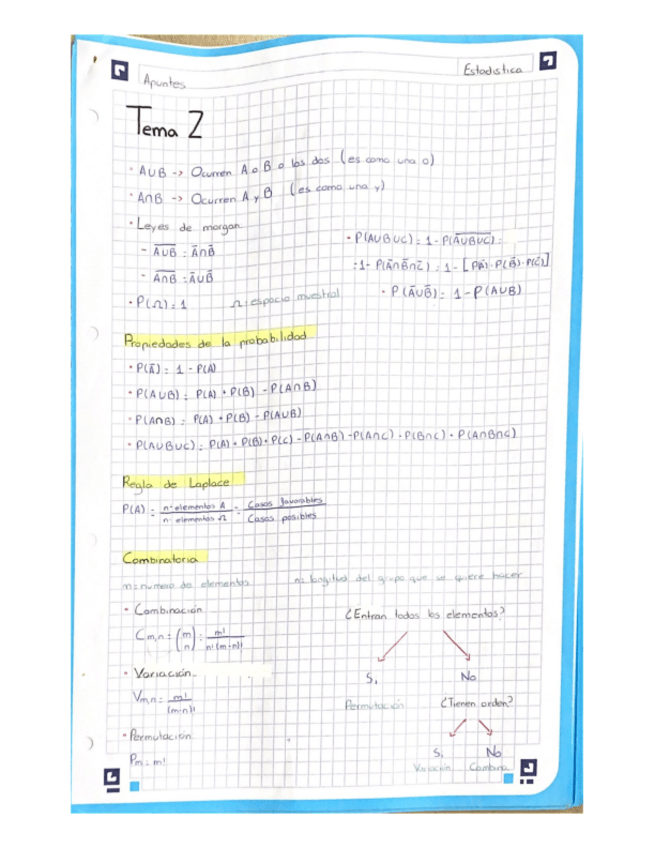 Apuntes
Estadistica
Tema 2
· A∪B -> Ocurren A o B o los dos (es como una o)
· A∩B -> Ocurren A y B (es como una y)
· Leyes de morgan
- \overline{A∪B} = Ā∩B̄
- \overline{A∩B} = Ā∪B̄
· P(Ω) = 1 Ω = espacio muestral
· P(A∪B∪C) = 1 - P(\overline{A∪B∪C}) =
= 1 - P(Ā∩B̄∩C̄) = 1 - [P(Ā)·P(B̄)·P(C̄)]
· P(Ā∪B̄) = 1 - P(A∪B)
Propiedades de la probabilidad
· P(Ā) = 1 - P(A)
· P(A∪B) = P(A) + P(B) - P(A∩B)
· P(A∩B) = P(A) + P(B) - P(A∪B)
· P(A∪B∪C) = P(A) + P(B) + P(C) - P(A∩B) - P(A∩C) - P(B∩C) + P(A∩B∩C)
Regla de Laplace
P(A) = nº elementos A / n elementos Ω = Casos favorables / Casos posibles
Combinatoria
m = numero de elementos n = longitud del grupo que se quiere hacer
· Combinación
Cm,n = (m n) = m! / n!(m-n)!
· Variación
Vm,n = m! / (m-n)!
· Permutación
Pm = m!
¿Entran todos los elementos?
Si No
Permutación ¿Tienen orden?
Si No
Variación Combina